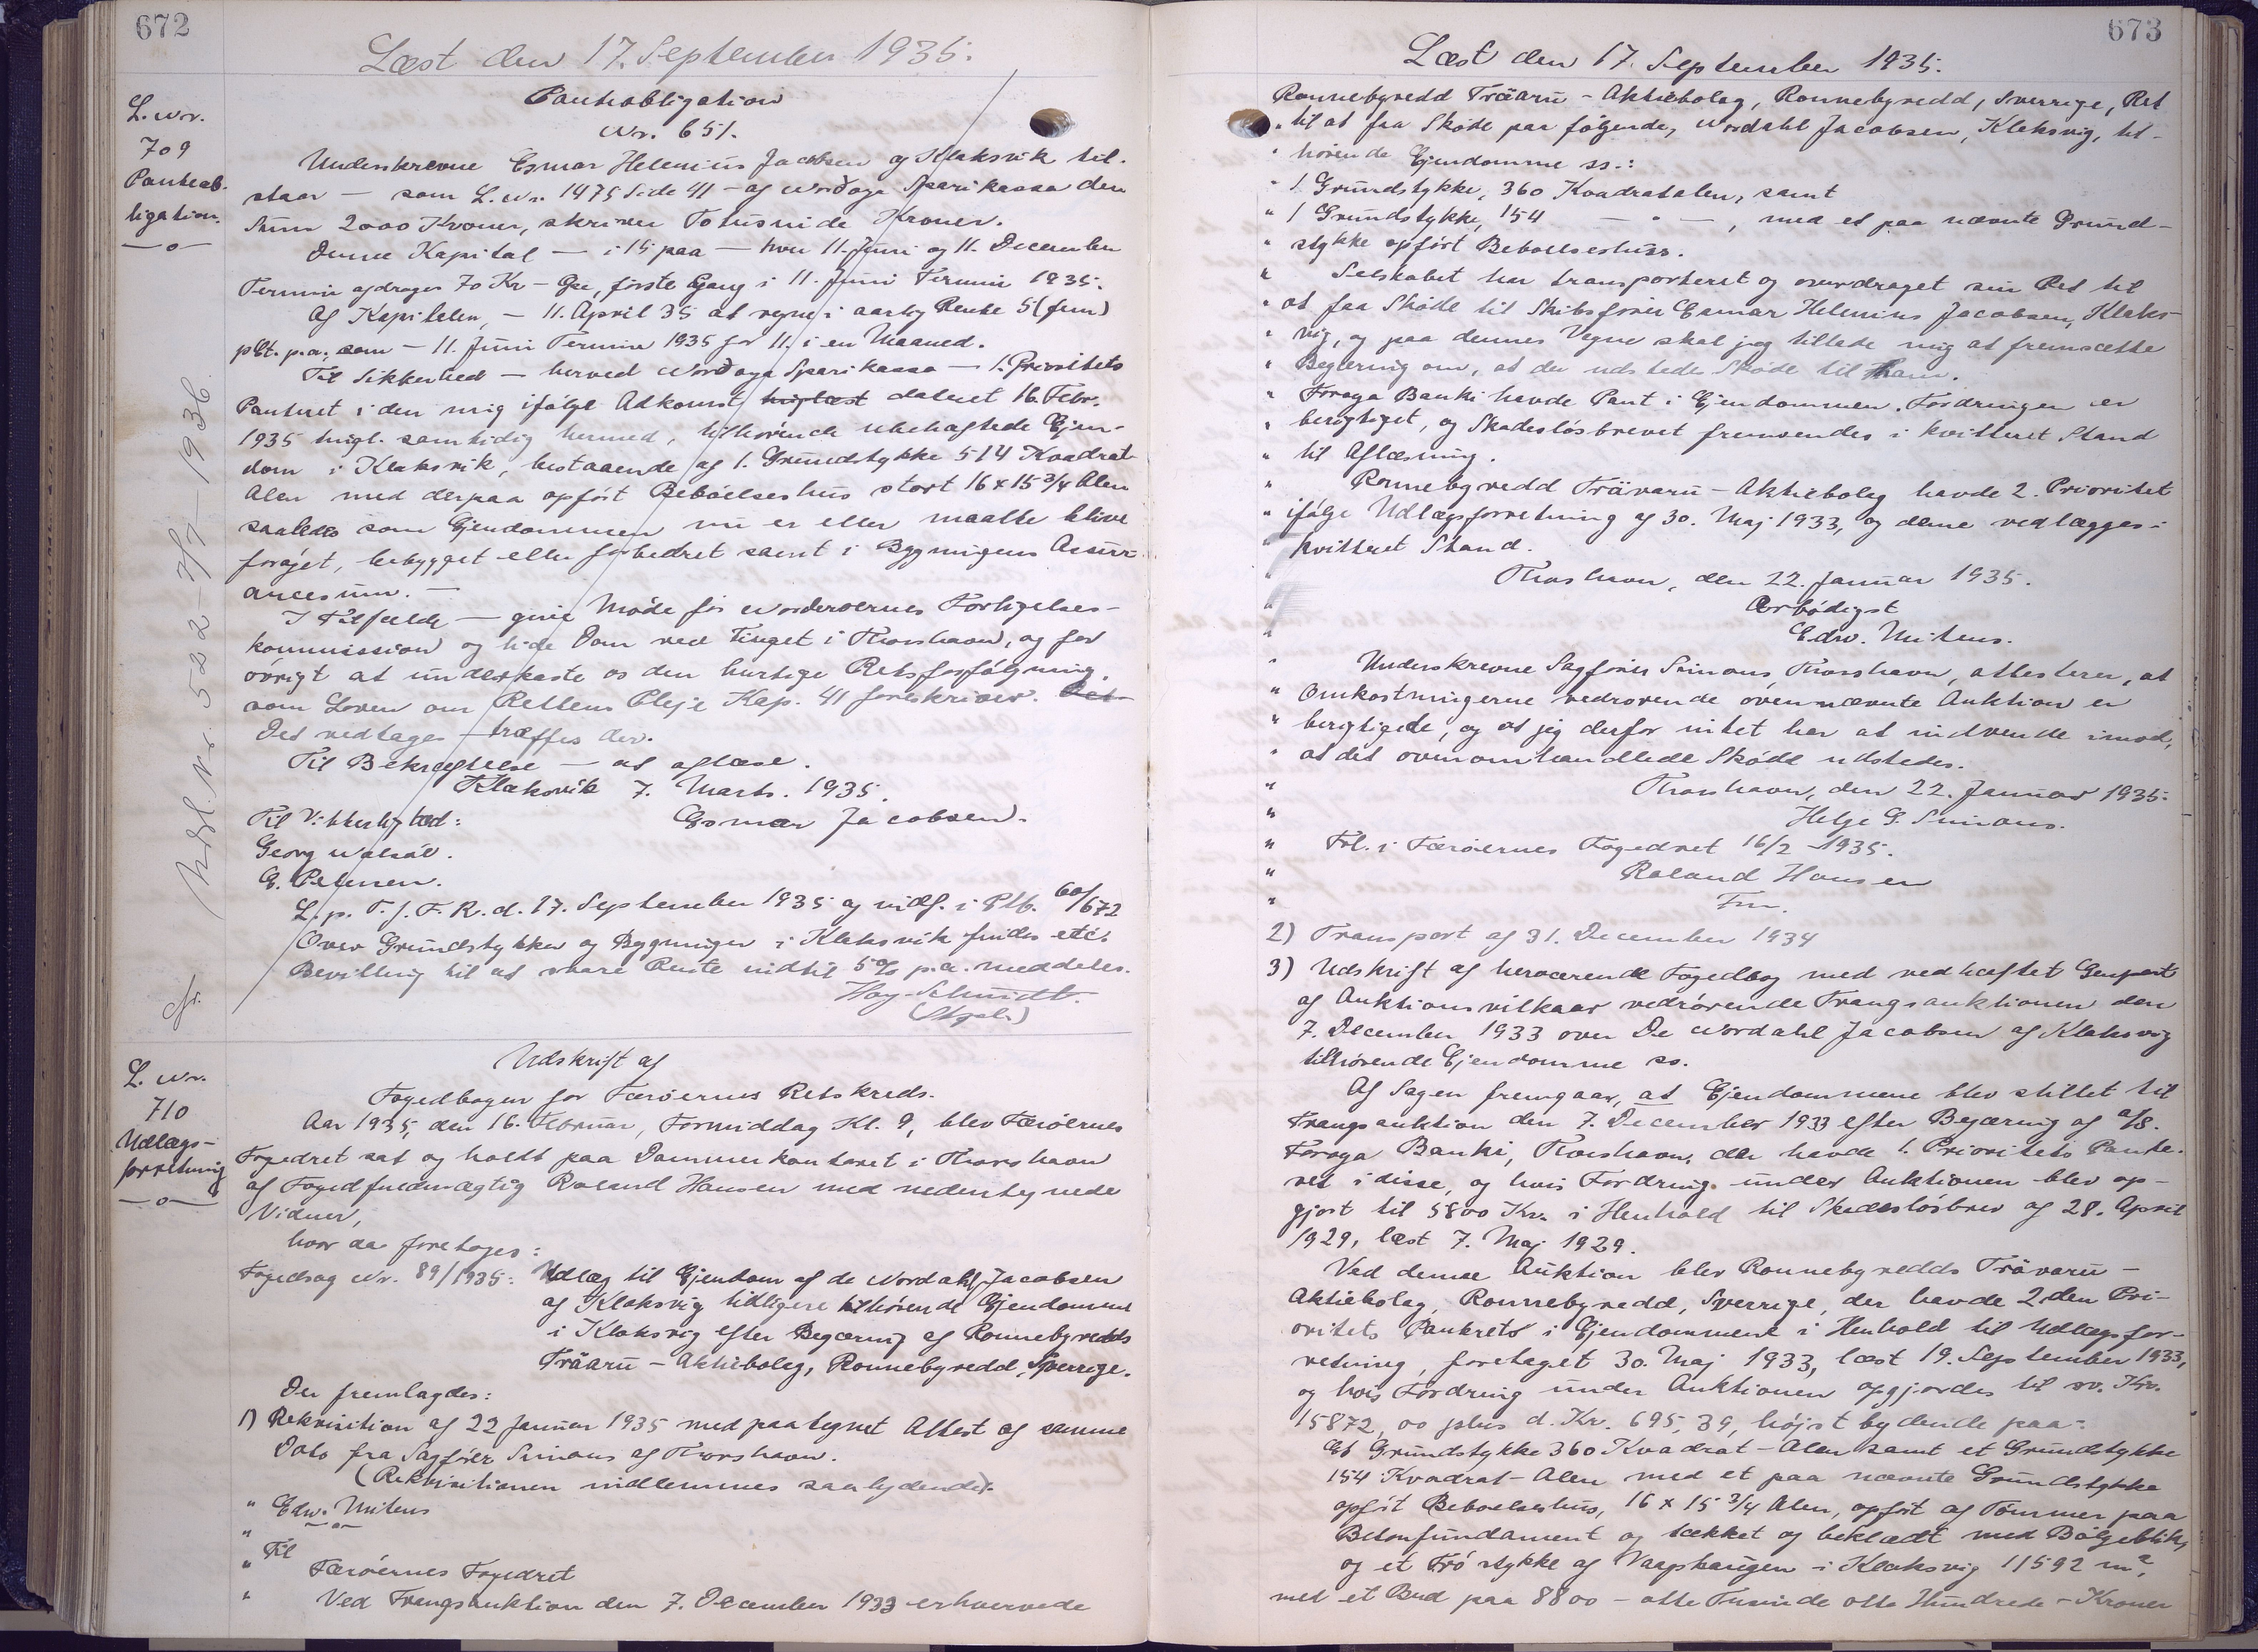 672
Læst den 17. September 1935.
L. Nr.
709
Panteob-
ligation.
—o—
Panteobligation
Nr. 651.
Underskrevne Esmar Helenius Jacobsen af Klaksvik til-
staar — som L. Nr. 1475 Side 41 — af Norðoya Sparikassa den
Sum 2000 Kroner, skriver Totusinde Kroner.
Denne Kapital — i 15 paa — hver 11. Juni og 11. December
Termin afdrages 70 Kr — Øre, første Gang i 11. Juni Termin 1935.
Af Kapitalen, — 11. April 35 at regne i aarlig Rente 5 (fem)
pCt. p.a., som — 11. Juni Termin 1935 for 11. i en Maaned.
Til Sikkerhed — herved Norðoya Sparikassa — 1. Prioritets
Panteret i den mig ifølge Adkomst tinglæst dateret 16. Febr.
1935 tingl. samtidig hermed, tilhørende ubehæftede Ejen-
dom i Klaksvik, bestaaende af 1. Grundstykke 514 Kvadrat
Alen med derpaa opført Beboelseshus stort 16 x 15 3/4 Alen
saaledes som Ejendommen nu er eller maatte blive
forøget, bebygget eller forbedret samt i Bygningens Assur-
ancesum. —
I Tilfælde — give Møde for Norderøernes Forligelses-
kommission og lide Dom ved Tinget i Thorshavn, og for
øvrigt at underkaste os den hurtige Retsforfølgning,
som Loven om Rettens Pleje Kap. 41 foreskriver. Det
Det vedtages — træffes der.
Til Bekræftelse — at aflæse.
Klaksvik 7. Marts. 1935.
Til Vitterlighed: Esmar Jacobsen.
Georg
E. Petersen.
L. p. T. f. F. R. d. 17. September 1935 og indf. i Ptb. 60/672
Over Grundstykker og Bygninger i Klaksvik findes etc.
Bevilling til at svare Rente indtil 5% p.a. meddeles.
Hoy-Schmidt.
(Stgeb.)
Cfr. Udsl. Nr. 522 - 7/7 - 1936
L. Nr.
710
Udlægs-
forretning
—o—
Udskrift af
Fogedbogen for Færøernes Retskreds.
Aar 1935, den 16. Februar, Formiddag Kl. 9, blev Færøernes
Fogedret sat og holdt paa Dommerkontoret i Thorshavn
af Fogedfuldmægtig Roland Hansen med nedentegnede
Vidner,
hvor da foretoges:
Fogedsag Nr. 89/1935: Udlæg til Ejendom af de Nordahl Jacobsen
af Klaksvig tidligere tilhørende Ejendomme
i Klaksvig efter Begæring af Ronnebyredds
Träaru - Aktiebolag, Ronnebyredd, Sverrige.
Der fremlagdes:
1) Rekvisition af 22 Januar 1935 med paategnet Attest af samme
Dato fra Sagfører Simons af Thorshavn.
(Rekvisitionen indlemmes saalydende).
" Edw. Mitens
" —o—
" Til
" Færøernes Fogedret
" Ved Tvangsauktion den 7. December 1933 erhvervede
673
Læst den 17. September 1935.
Ronnebyredd Träaru - Aktiebolag, Ronnebyredd, Sverrige, Ret
" til at faa Skøde paa følgende, Nordahl Jacobsen, Klaksvig, til-
" hørende Ejendomme ss.:
" 1 Grundstykke, 360 Kvadratalen, samt
" 1 Grundstykke, 154 — " — , med et paa nævnte Grund-
" stykke opført Beboelseshus.
" Selskabet har transporteret og overdraget sin Ret til
" at faa Skøde til Skibsfører Esmar Helenius Jacobsen, Klaks-
" vig, og paa dennes Vegne skal jeg tillade mig at fremsætte
" Begæring om, at der udstedes Skøde til ham.
" Føroya Banki havde Pant i Ejendommen. Fordringen er
" berigtiget, og Skadesløsbrevet fremsendes i kvitteret Stand
" til Aflæsning.
" Ronnebyredd Trävaru - Aktiebolag havde 2. Prioritet
" ifølge Udlægsforretning af 30. Maj 1933, og denne vedlægges i
" kvitteret Stand.
" Thorshavn, den 22. Januar 1935.
" Ærbødigst
" Edw. Mitens.
" Underskrevne Sagfører Simons, Thorshavn, attesterer, at
" Omkostningerne vedrørende ovennævnte Auktion er
" berigtigede, og at jeg derfor intet har at indvende imod,
" at det ovenomhandlede Skøde udstedes.
" Thorshavn, den 22. Januar 1935.
" Helge G. Simons.
" Frl. i Færøernes Fogedret 16/2 - 1935.
" Roland Hansen
" Fm.
2) Transport af 31. December 1934
3) Udskrift af herværende Fogedbog med vedhæftet Genpart
af Auktionsvilkaar vedrørende Tvangsauktionen den
7. December 1933 over De Nordahl Jacobsen af Klaksvig
tilhørende Ejendomme ss.
Af Sagen fremgaar, at Ejendommene blev stillet til
Tvangsauktion den 7. December 1933 efter Begæring af a/s.
Føroya Banki, Thorshavn, der havde 1. Prioritets Pante-
ret i disse, og hvis Fordring under Auktionen blev op-
gjort til 5800 Kr. i Henhold til Skadesløsbrev af 28. April
1929, læst 7. Maj 1929.
Ved denne Auktion blev Ronnebyredds Trävaru -
Aktiebolag, Ronnebyredd, Sverrige, der havde 2den Pri-
oritets Panterets i Ejendommene i Henhold til Udlægsfor-
retning, foretaget 30. Maj 1933, læst 19. September 1933,
og hvis Fordring under Auktionen opgjordes til sv. Kr.
15872,00 plus d. Kr. 695,39, højst bydende paa:
Et Grundstykke 360 Kvadrat-Alen samt et Grundstykke
154 Kvadrat-Alen med et paa nævnte Grundstykke
opført Beboelseshus, 16 x 15 3/4 Alen, opført af Tømmer paa
Betonfundament og tækket og beklædt med Bølgeblik,
og et Trøstykke af Vaagshaugen i Klaksvig 11592 m²,
med et Bud paa 8800 - otte Tusinde otte Hundrede - Kroner